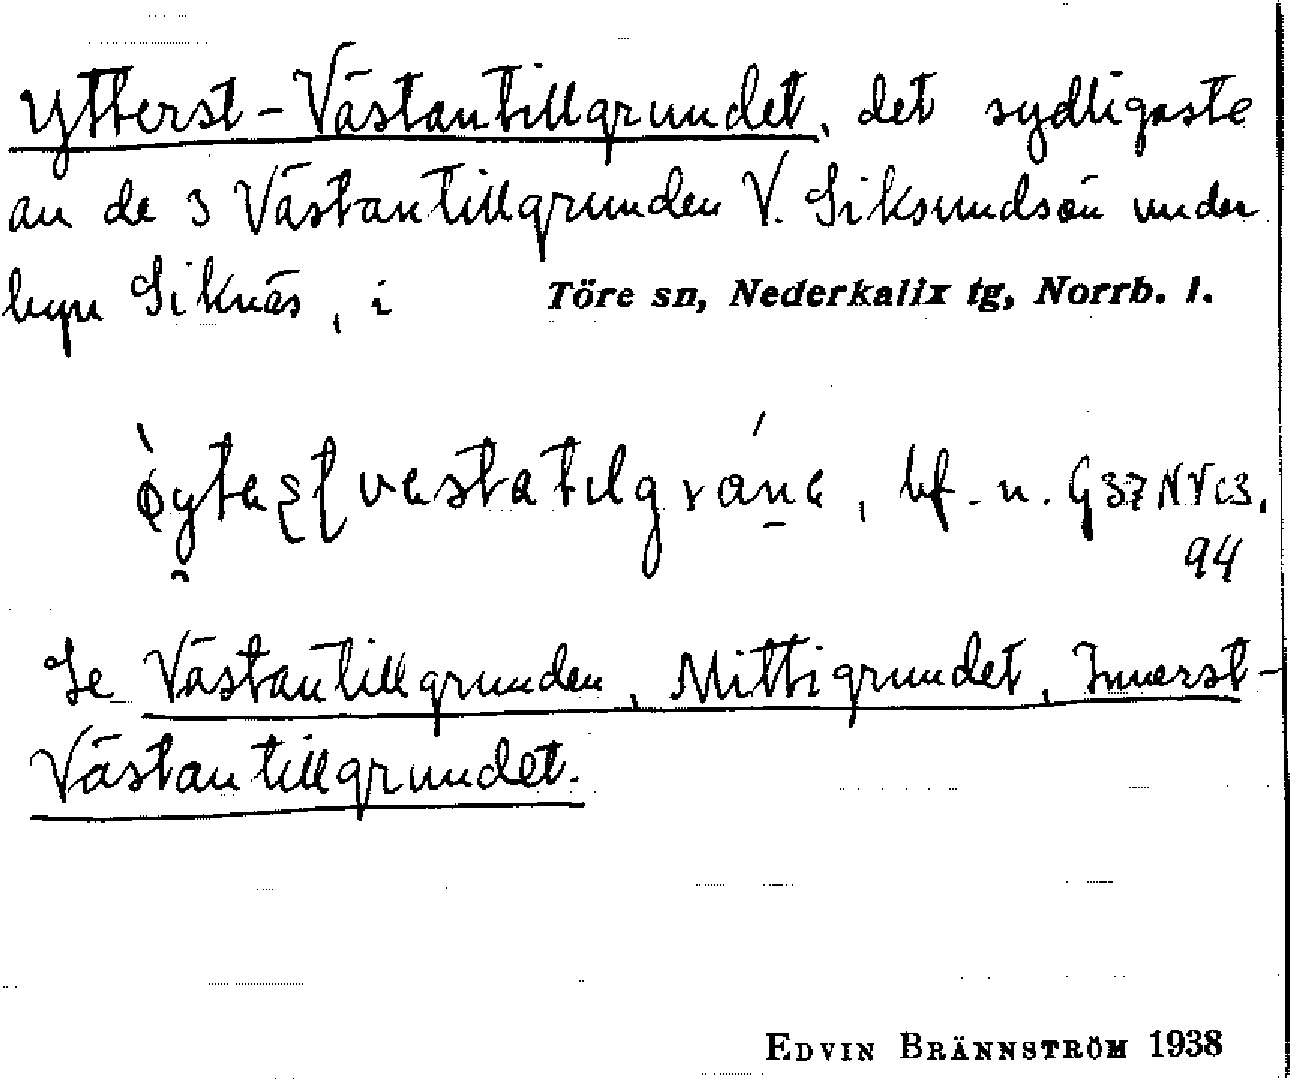 Ytterst-Västantillgrundet, det sydligaste
av de 3 Västantillgrunden V. Siksundsön under
byn Siknäs, i Töre sn, Nederkalix tg, Norrb. l.
bf. n. G 37 NV c3.
94
Se Västantillgrunden, Mittigrundet, Innerst-
Västantillgrundet.
EDVIN BRÄNNSTRÖM 1938